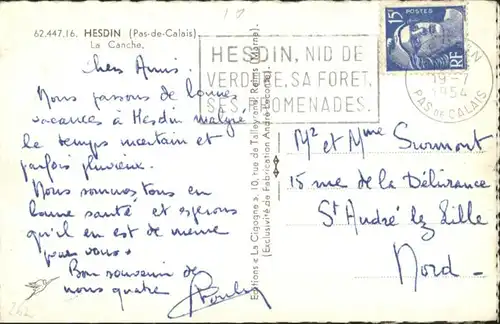 62.447.16. HESDIN (Pas-de-Calais)
La Canche.
Chers Amis.
Nous passons de bonnes
vacances à Hesdin malgré
le temps incertain et
parfois pluvieux.
Nous sommes tous en
bonne santé et espérons
qu'il en est de même
pour vous.
Bon souvenir de
nous quatre
Editions « La Cigogne », 10, rue de Talleyrand, Reims (Marne).
(Exclusivité de Fabrication André Leconte).
HESDIN, NID DE
VERDURE, SA FORET,
SES PROMENADES.
15F
POSTES
RF
19-7
1954
PAS DE CALAIS
Mr et Mme Surmont
15 rue de la Délivrance
St André lez Lille
Nord -
262